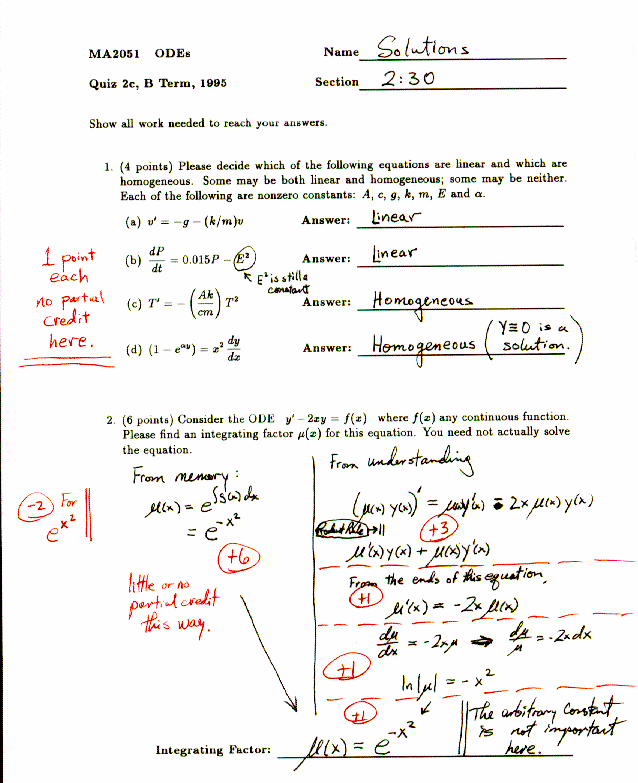 MA2051 ODEs
Name Solutions
Quiz 2c, B Term, 1995
Section 2:30
Show all work needed to reach your answers.
1. (4 points) Please decide which of the following equations are linear and which are
homogeneous. Some may be both linear and homogeneous; some may be neither.
Each of the following are nonzero constants: A, c, g, k, m, E and α.
(a) v' = −g − (k/m)v Answer: Linear
1 point
each
no partial
credit
here.
(b) dP/dt = 0.015P − E² Answer: Linear
E² is still a
constant
(c) T' = −(Ak/cm) T² Answer: Homogeneous
(d) (1 − e^{αy}) = x² dy/dx Answer: Homogeneous (Y≡0 is a
solution.)
2. (6 points) Consider the ODE y' − 2xy = f(x) where f(x) any continuous function.
Please find an integrating factor μ(x) for this equation. You need not actually solve
the equation.
From memory:
μ(x) = e^{∫S(x)dx}
= e^{-x²}
+6
-2 For
e^{x²}
little or no
partial credit
this way.
From understanding
(μ(x) y(x))' = μ(x)y'(x) − 2x μ(x) y(x)
Product Rule → ||
+3
μ'(x) y(x) + μ(x) y'(x)
From the ends of this equation,
+1
μ'(x) = -2x μ(x)
dμ/dx = -2xμ ⇒ dμ/μ = -2x dx
+1
ln|μ| = -x²
+1
The arbitrary constant
is not important
here.
Integrating Factor: μ(x) = e^{-x²}